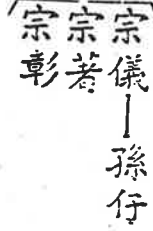 宗儀—孫仔
宗著
宗彰